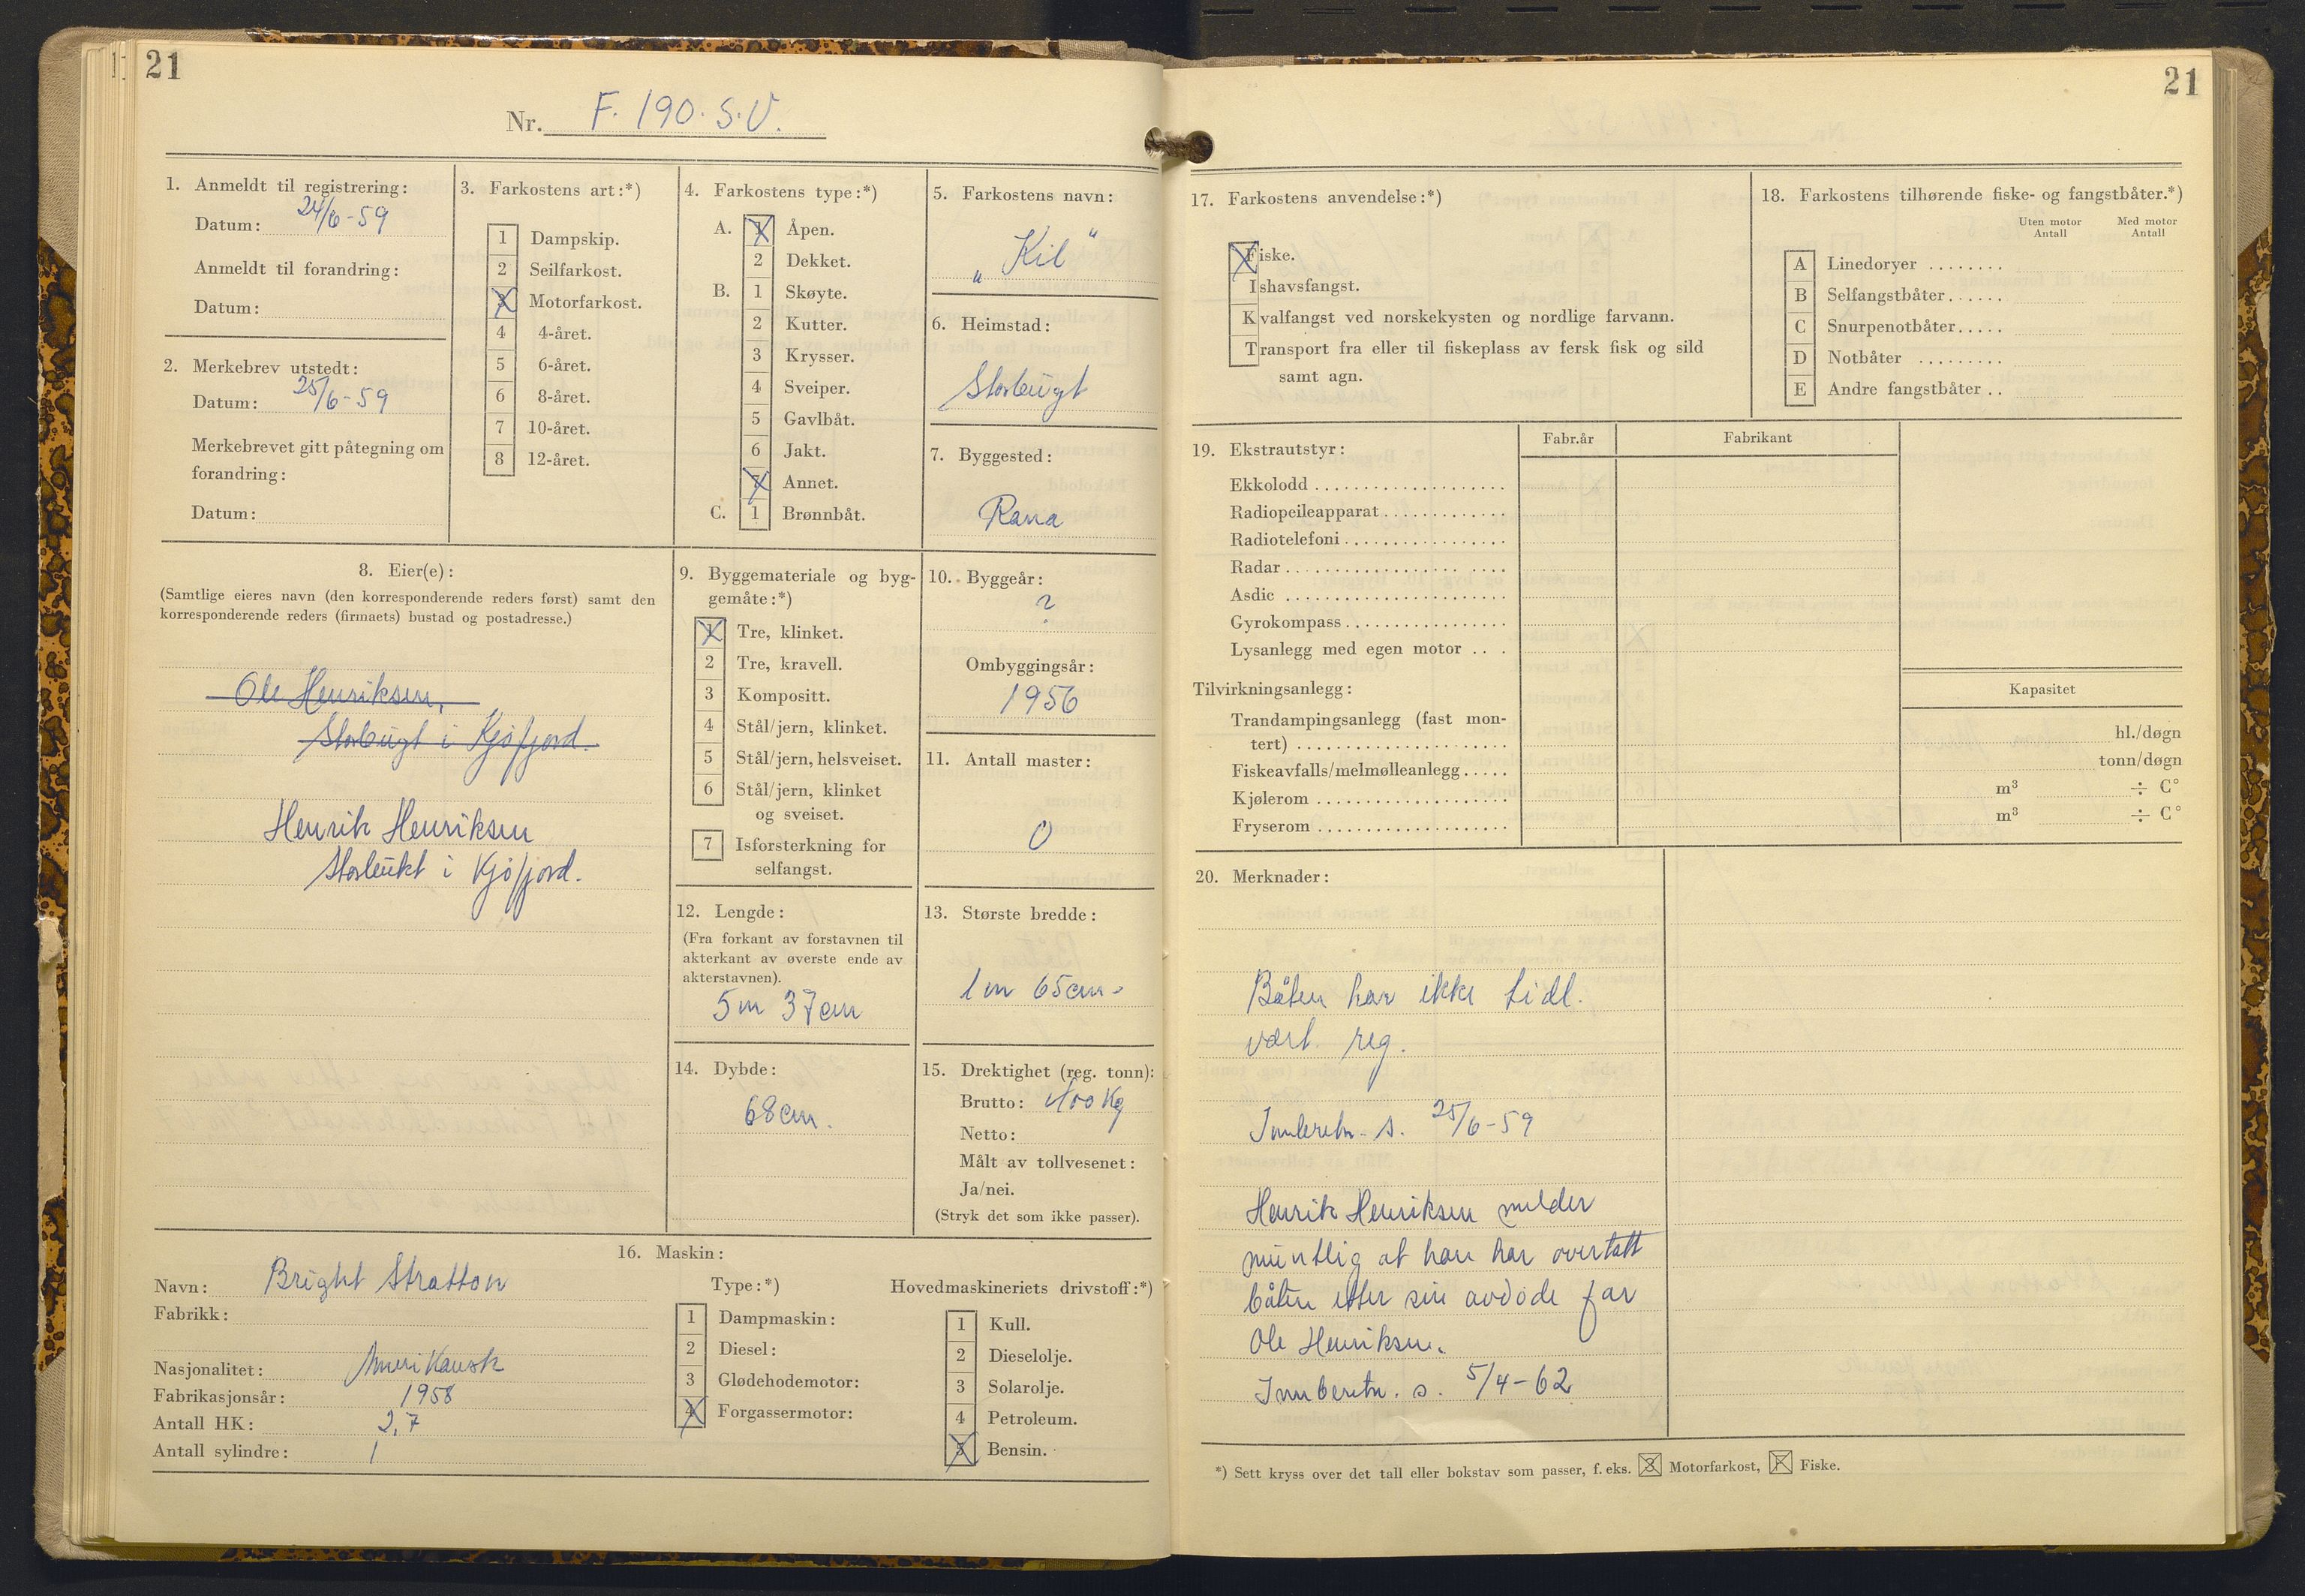 21
Nr. F. 190. S.V.
1. Anmeldt til registrering:
Datum: 24/6-59
Anmeldt til forandring:
Datum:
2. Merkebrev utstedt:
Datum: 25/6-59
Merkebrevet gitt påtegning om
forandring:
Datum:
3. Farkostens art:*)
1 Dampskip.
2 Seilfarkost.
3 Motorfarkost.
4 4-året.
5 6-året.
6 8-året.
7 10-året.
8 12-året.
4. Farkostens type:*)
A. 1 Åpen.
2 Dekket.
B. 1 Skøyte.
2 Kutter.
3 Krysser.
4 Sveiper.
5 Gavlbåt.
6 Jakt.
7 Annet.
C. 1 Brønnbåt.
5. Farkostens navn:
„Kil“
6. Heimstad:
Storbugt
7. Byggested:
Rana
8. Eier(e):
(Samtlige eieres navn (den korresponderende reders først) samt den
korresponderende reders (firmaets) bustad og postadresse.)
Ole Henriksen,
Storbugt i Kjøfjord.
Henrik Henriksen
Storbukt i Kjøfjord.
9. Byggemateriale og byg-
gemåte:*)
1 Tre, klinket.
2 Tre, kravell.
3 Kompositt.
4 Stål/jern, klinket.
5 Stål/jern, helsveiset.
6 Stål/jern, klinket
og sveiset.
7 Isforsterkning for
selfangst.
10. Byggeår:
?
Ombyggingsår:
1956
11. Antall master:
0
12. Lengde:
(Fra forkant av forstavnen til
akterkant av øverste ende av
akterstavnen).
5 m 37 cm
13. Største bredde:
1 m 65 cm.
14. Dybde:
68 cm.
15. Drektighet (reg. tonn):
Brutto: 400 Kg
Netto:
Målt av tollvesenet:
Ja/nei.
(Stryk det som ikke passer).
16. Maskin:
Navn: Bright Stratton
Fabrikk:
Nasjonalitet: Amerikansk
Fabrikasjonsår: 1958
Antall HK: 2,7
Antall sylindre: 1
Type:*)
1 Dampmaskin:
2 Diesel:
3 Glødehodemotor:
4 Forgassermotor:
Hovedmaskineriets drivstoff:*)
1 Kull.
2 Dieselolje.
3 Solarolje.
4 Petroleum.
5 Bensin.
21
17. Farkostens anvendelse:*)
Fiske.
Ishavsfangst.
Kvalfangst ved norskekysten og nordlige farvann.
Transport fra eller til fiskeplass av fersk fisk og sild
samt agn.
18. Farkostens tilhørende fiske- og fangstbåter.*)
Uten motor Med motor
Antall Antall
A Linedoryer ........
B Selfangstbåter......
C Snurpenotbåter.....
D Notbåter .........
E Andre fangstbåter ..
19. Ekstrautstyr:
Fabr.år Fabrikant
Ekkolodd ....................
Radiopeileapparat.............
Radiotelefoni.................
Radar .......................
Asdic .......................
Gyrokompass.................
Lysanlegg med egen motor ...
Tilvirkningsanlegg:
Kapasitet
Trandampingsanlegg (fast mon-
tert) ...................... hl./døgn
Fiskeavfalls/melmølleanlegg..... tonn/døgn
Kjølerom .................... m³ ÷ C°
Fryserom .................... m³ ÷ C°
20. Merknader:
Båten har ikke tidl.
vært reg.
Innberetn. s. 25/6-59
Henrik Henriksen melder
muntlig at han har overtatt
båten etter sin avdøde far
Ole Henriksen.
Innberetn. s. 5/4-62
*) Sett kryss over det tall eller bokstav som passer, f. eks. 3 Motorfarkost, F Fiske.